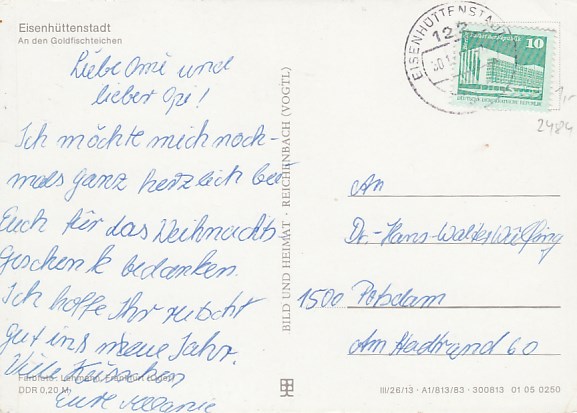 Eisenhüttenstadt
An den Goldfischteichen
Liebe Omi und
lieber Opi!
Ich möchte mich noch-
mals ganz herzlich bei
Euch für das Weihnachts-
geschenk bedanken.
Ich hoffe Ihr rutscht
gut ins neue Jahr.
Viele Küsschen
Eure Melanie
Farbfoto: Lehmann, Frankfurt (Oder)
DDR 0,20 M
BILD UND HEIMAT · REICHENBACH (VOGTL)
EISENHÜTTENSTADT
122
10
DEUTSCHE DEMOKRATISCHE REPUBLIK
1,-
2484
An
Dr. Hans-Walter Wülfing
1500 Potsdam
Am Stadtrand 60
III/26/13 · A1/813/83 · 300813 01 05 0250